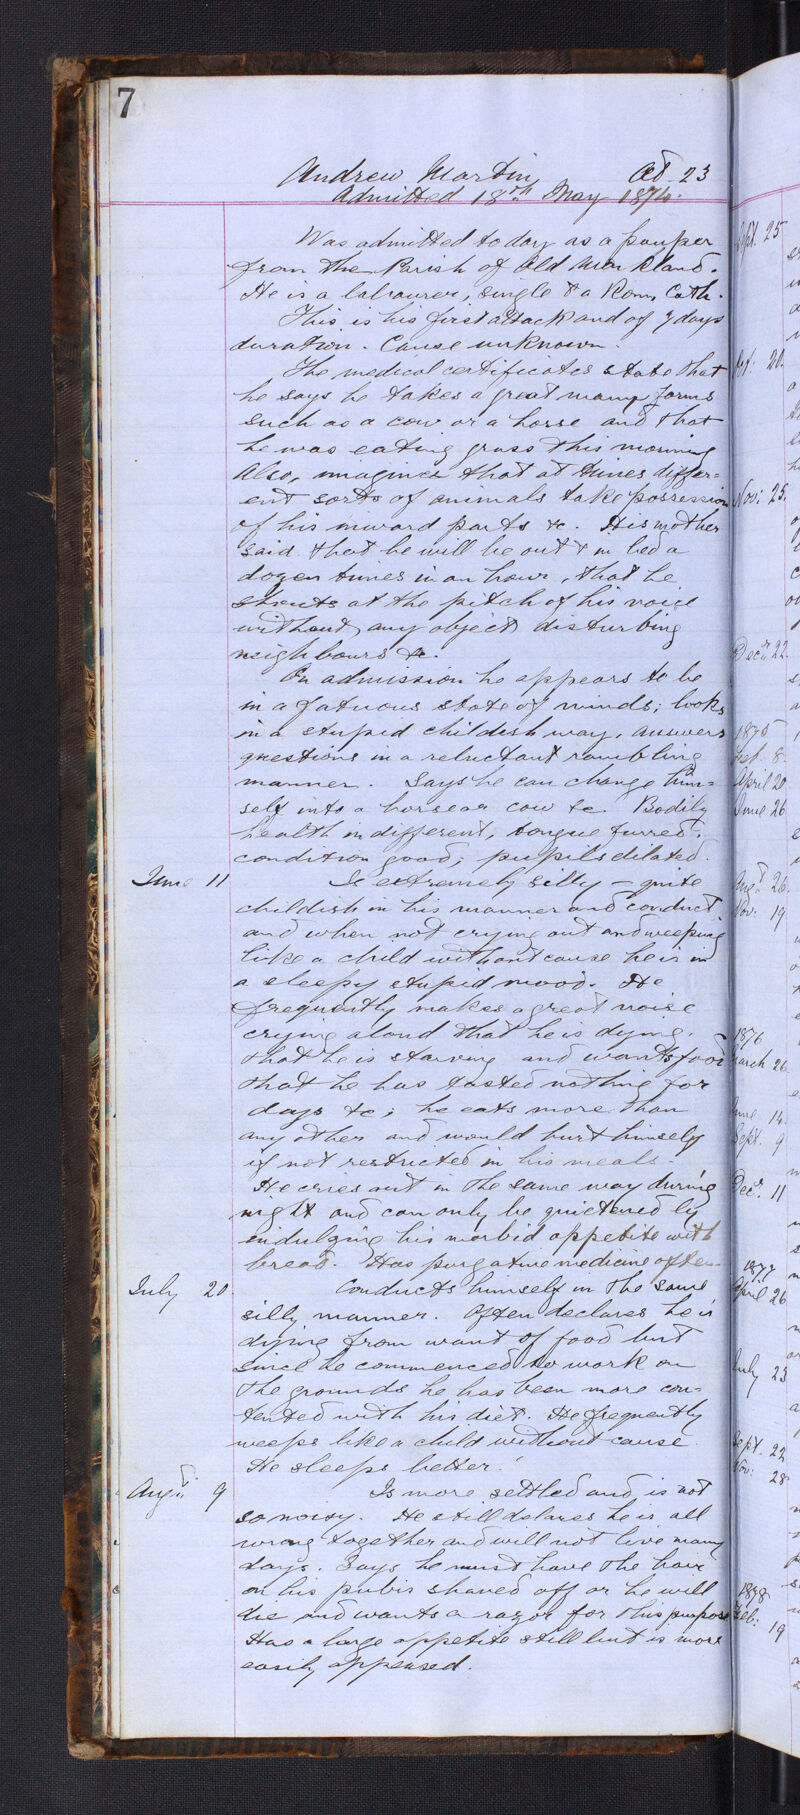 7
Andrew Martin Æt. 23
Admitted 18th May 1874.
Was admitted to day as a pauper
from the Parish of Old Monkland.
He is a labourer, single & a Rom. Cath.
This is his first attack and of 7 days
duration. Cause unknown.
The medical certificates state that
he says he takes a great many forms
such as a cow or a horse and that
he was eating grass this morning
Also, imagines that at times differ=
ent sorts of animals take possession
of his inward parts &c. His mother
said that he will be out & in bed a
dozen times in an hour, that he
shouts at the pitch of his voice
without any object disturbing
neighbours &c.
On admission he appears to be
in a fatuous state of minds; looks
in a stupid childish way, answers
questions in a reluctant rambling
manner. Says he can change him=
self into a horse or cow &c. Bodily
health indifferent, tongue furred.
condition good; pupils dilated.
June 11 Is extremely silly – quite
childish in his manner and conduct
and when not crying out and weeping
like a child without cause he is in
a sleepy stupid mood. He
frequently makes a great noise
crying aloud that he is dying,
that he is starving and wants food
that he has tasted nothing for
days &c; he eats more than
any other and would hurt himself
if not restricted in his meals.
He cries out in the same way during
night and can only be quietened by
indulging his morbid appetite with
bread. Has purgative medicine often.
July 20. Conducts himself in the same
silly manner. Often declares he is
dying from want of food but
since he commenced to work on
the grounds he has been more con=
tented with his diet. He frequently
weeps like a child without cause.
He sleeps better.
Augt. 9 Is more settled and is not
so noisy. He still declares he is all
wrong together and will not live many
days. Says he must have the hair
on his pubis shaved off or he will
die and wants a razor for this purpose
Has a large appetite still but is more
easily appeased.
Sept. 25
Oct. 20.
Nov: 25.
Decr. 22.
1875
Feb. 8.
April 20
June 26
Augt. 26.
Nov: 19
1876
March 26.
June 14.
Sept. 9
Decr. 11
1877
April 26
July 23
Sept. 22
Nov: 28
1878
Feb. 19